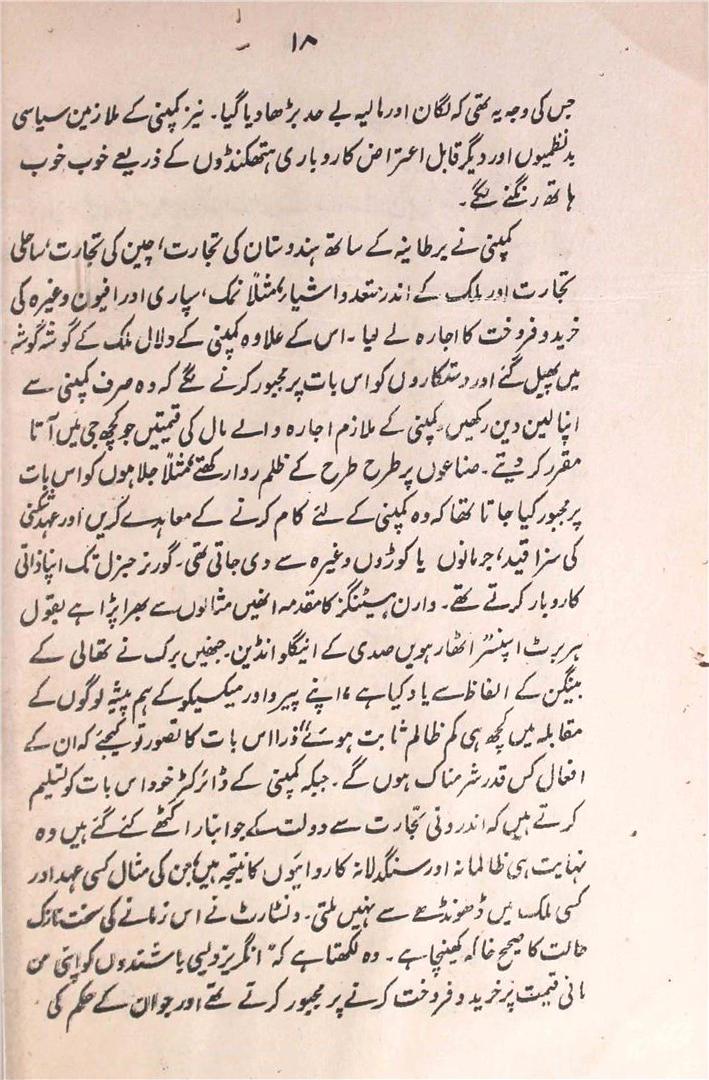 ۱۸
جس کی وجہ یہ تھی کہ لگان اور مالیہ بے حد بڑھا دیا گیا۔ نیز کمپنی کے ملازمین سیاسی
بد نظمیوں اور دیگر قابل اعتراض کاروباری ہتھکنڈوں کے ذریعے خوب خوب
ہاتھ رنگنے لگے۔
کمپنی نے برطانیہ کے ساتھ ہندوستان کی تجارت، چین کی تجارت، ساحلی
تجارت اور ملک کے اندر متعدد اشیاء، مثلاً نمک، سپاری اور افیون وغیرہ کی
خرید و فروخت کا اجارہ لے لیا۔ اس کے علاوہ کمپنی کے دلال ملک کے گوشہ گوشہ
میں پھیل گئے اور دستکاروں کو اس بات پر مجبور کرنے لگے کہ وہ صرف کمپنی سے
اپنا لین دین رکھیں۔ کمپنی کے ملازم اجارہ والے مال کی قیمتیں جو کچھ جی میں آتا
مقرر کر دیتے۔ صناعوں پر طرح طرح کے ظلم روا رکھتے، مثلاً جلاہوں کو اس بات
پر مجبور کیا جاتا تھا کہ وہ کمپنی کے لئے کام کرنے کے معاہدے کریں اور عہد شکنی
کی سزا قید، جرمانوں یا کوڑوں وغیرہ سے دی جاتی تھی۔ گورنر جنرل تک اپنا ذاتی
کاروبار کرتے تھے۔ وارن ہیسٹنگز کا مقدمہ انھیں مثالوں سے بھرا پڑا ہے بقول
ہربرٹ اسپنسر "اٹھارہویں صدی کے اینگلو انڈین۔ جنھیں برک نے تھالی کے
بینگن کے الفاظ سے یاد کیا ہے، اپنے پیرو اور میکسیکو کے ہم پیشہ لوگوں کے
مقابلہ میں کچھ ہی کم ظالم ثابت ہوئے" ذرا اس بات کا تصور تو کیجئے کہ ان کے
افعال کس قدر شرمناک ہوں گے۔ جبکہ کمپنی کے ڈائرکٹر خود اس بات کو تسلیم
کرتے ہیں کہ اندرونی تجارت سے دولت کے جو انبار اکٹھے کئے گئے ہیں وہ
نہایت ہی ظالمانہ اور سنگدلانہ کاروایئوں کا نتیجہ ہیں، جن کی مثال کسی عہد اور
کسی ملک میں ڈھونڈھے سے نہیں ملتی۔ ونسٹارٹ نے اس زمانے کی سخت نازک
حالت کا صحیح خاکہ کھینچا ہے۔ وہ لکھتا ہے کہ "انگریز دیسی باشندوں کو اپنی من
مانی قیمت پر خرید و فروخت کرنے پر مجبور کرتے تھے اور جو ان کے حکم کی